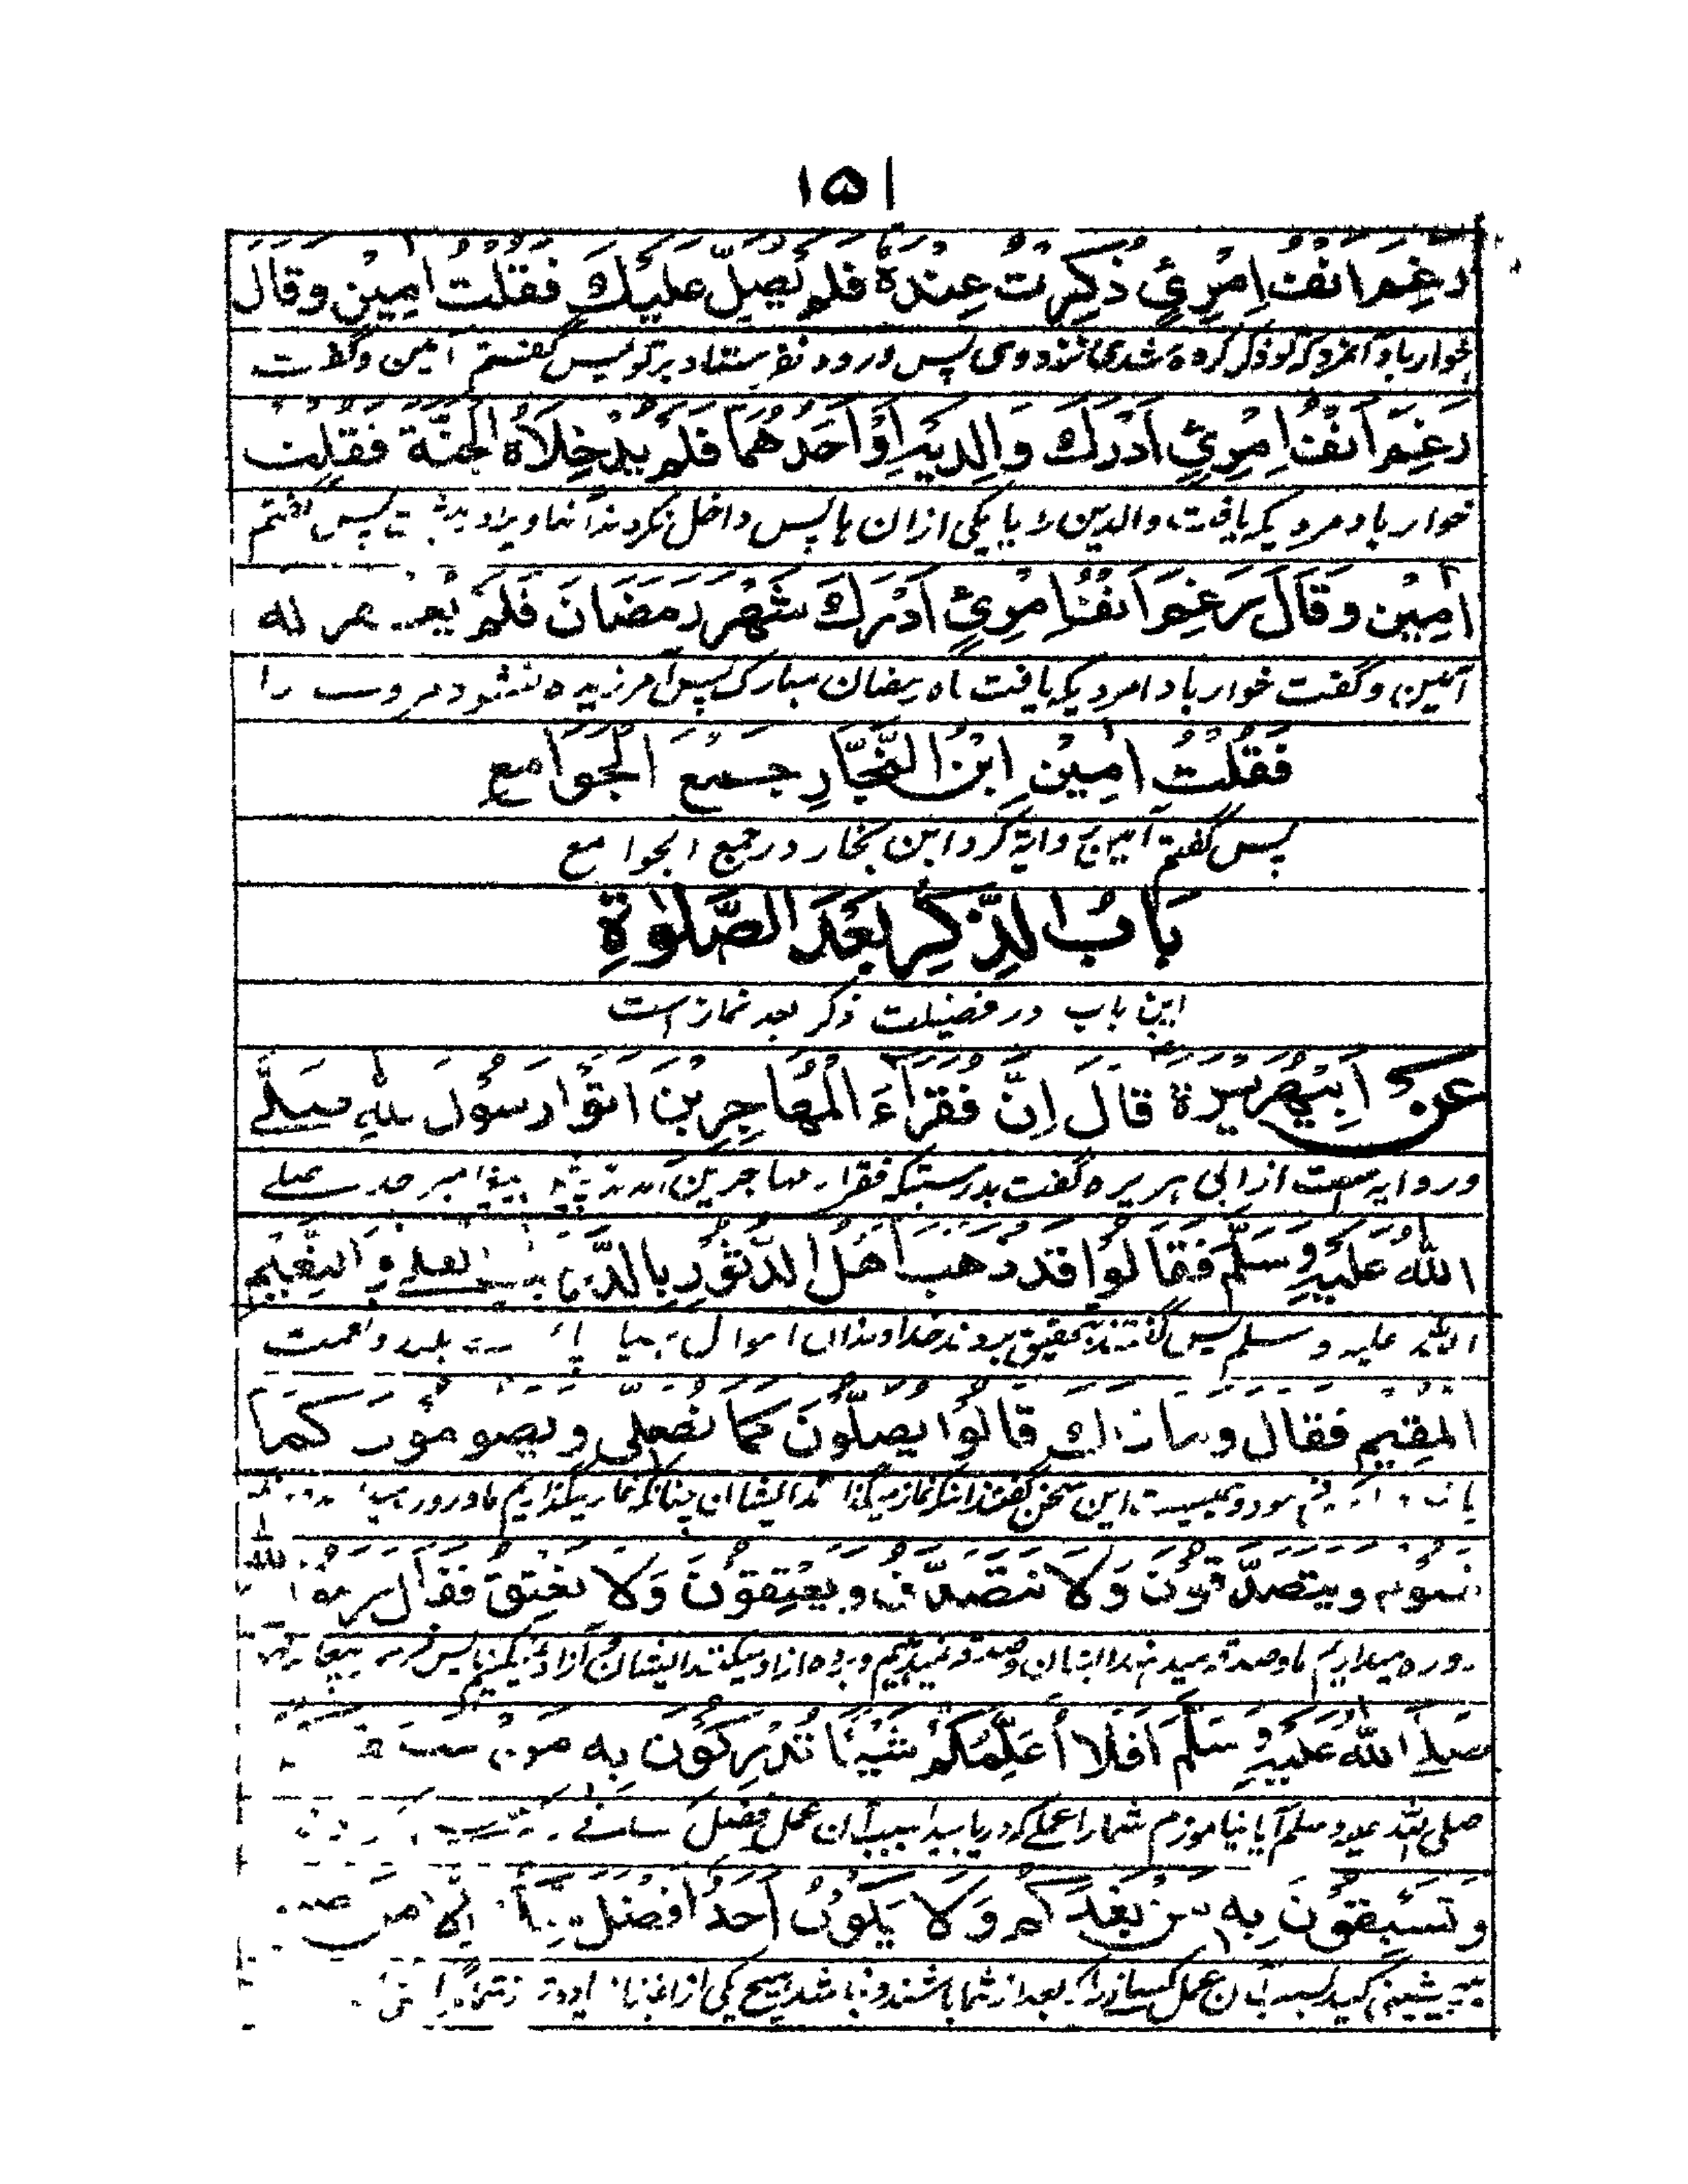 ١٥١
رَغِمَ اَنْفُ اِمْرِئٍ ذُكِرْتُ عِنْدَهٗ فَلَمْ يُصَلِّ عَلَيْكَ فَقُلْتُ اٰمِيْن وقَالَ
خوار باد آنمرد که تو ذکر کرده شدی نزد وی پس درود نفرستاد بر تو پس گفتم آمین وگفت
رَغِمَ اَنْفُ اِمْرِئٍ اَدْرَكَ وَالِدَيْهِ اَوْ اَحَدَهُمَا فَلَمْ يُدْخِلَاهُ الْجَنَّةَ فَقُلْتُ
خوار باد مردیکه یافت والدین را یا یکی ازان ها پس داخل نکردند آنها ویرا در بهشت پس گفتم
اٰمِيْن وقَالَ رَغِمَ اَنْفُ اِمْرِئٍ اَدْرَكَ شَهْرَ رَمَضَانَ فَلَمْ يُغْفَر له
آمین وگفت خوار باد امردیکه یافت ماه رمضان مبارک پس آمرزیده نشود مروے را
فَقُلْتُ اٰمِيْن اِبْنُ النَّجَّارِ جَمْعُ الْجَوَامع
پس گفتم آمین روایة کرد ابن نجار در جمع الجوامع
بَابُ الذِّكْرِ بَعْدَ الصَّلٰوةِ
این باب در فضیلت ذکر بعد نماز است
عَنْ اَبِيْ هُرَيْرَةَ قَالَ اِنَّ فُقَرَآءَ الْمُهَاجِرِيْنَ اَتَوْا رَسُوْلَ اللهِ صَلَّے
وروایه ست از ابی هریره گفت بدرستیکه فقرا مهاجرین آمدند پیغامبر خدا صلے
اللهُ عَلَيْهِ وَسَلَّمَ فَقَالُوْا قَدْ ذَهَبَ اَهْلُ الدُّثُوْرِ بِالدَّرَجَاتِ العلےٰ وَالنَّعِيْمِ
الله علیه وسلم پس گفتند تحقیق بردند خداوندان اموال بلند ونعمت
الْمُقِيْمِ فقال وما ذاك قَالُوْا يُصَلُّوْنَ كَمَا نُصَلِّي وَيَصُوْمُوْنَ كَمَا
این سخن گفتند نماز میگذارند ایشان چنانکه نماز میگذاریم ما و روزه
نَصُوْمُ وَيَتَصَدَّقُوْنَ وَلَا نَتَصَدَّقُ وَيَعْتِقُوْنَ وَلَا نَعْتِقُ فَقَالَ رسول الله
روزه میداریم ما وصدقه میدهند ایشان وصدقه نمیدهیم وبرده ازاد میکنند ایشان آزاد نمیکنیم پس
صَلَّے اللهُ عَلَيْهِ وَسَلَّمَ اَفَلَا اُعَلِّمُكُمْ شَيْئًا تُدْرِكُوْنَ بِهٖ مَنْ سَبَقَ
صلی الله علیه وسلم آیا نیاموزم شما را عملے که دریابید بسبب آن عمل فضل کسانے
وَتَسْبِقُوْنَ بِهٖ مَنْ بَعْدَكُمْ وَلَا يَكُوْنُ اَحَدٌ اَفْضَلَ اِلَّا مَنْ
پیشی کنید بسبب آن عمل کسانے را که بعد از شما باشند ونباشد هیچ یکی از اغنیا